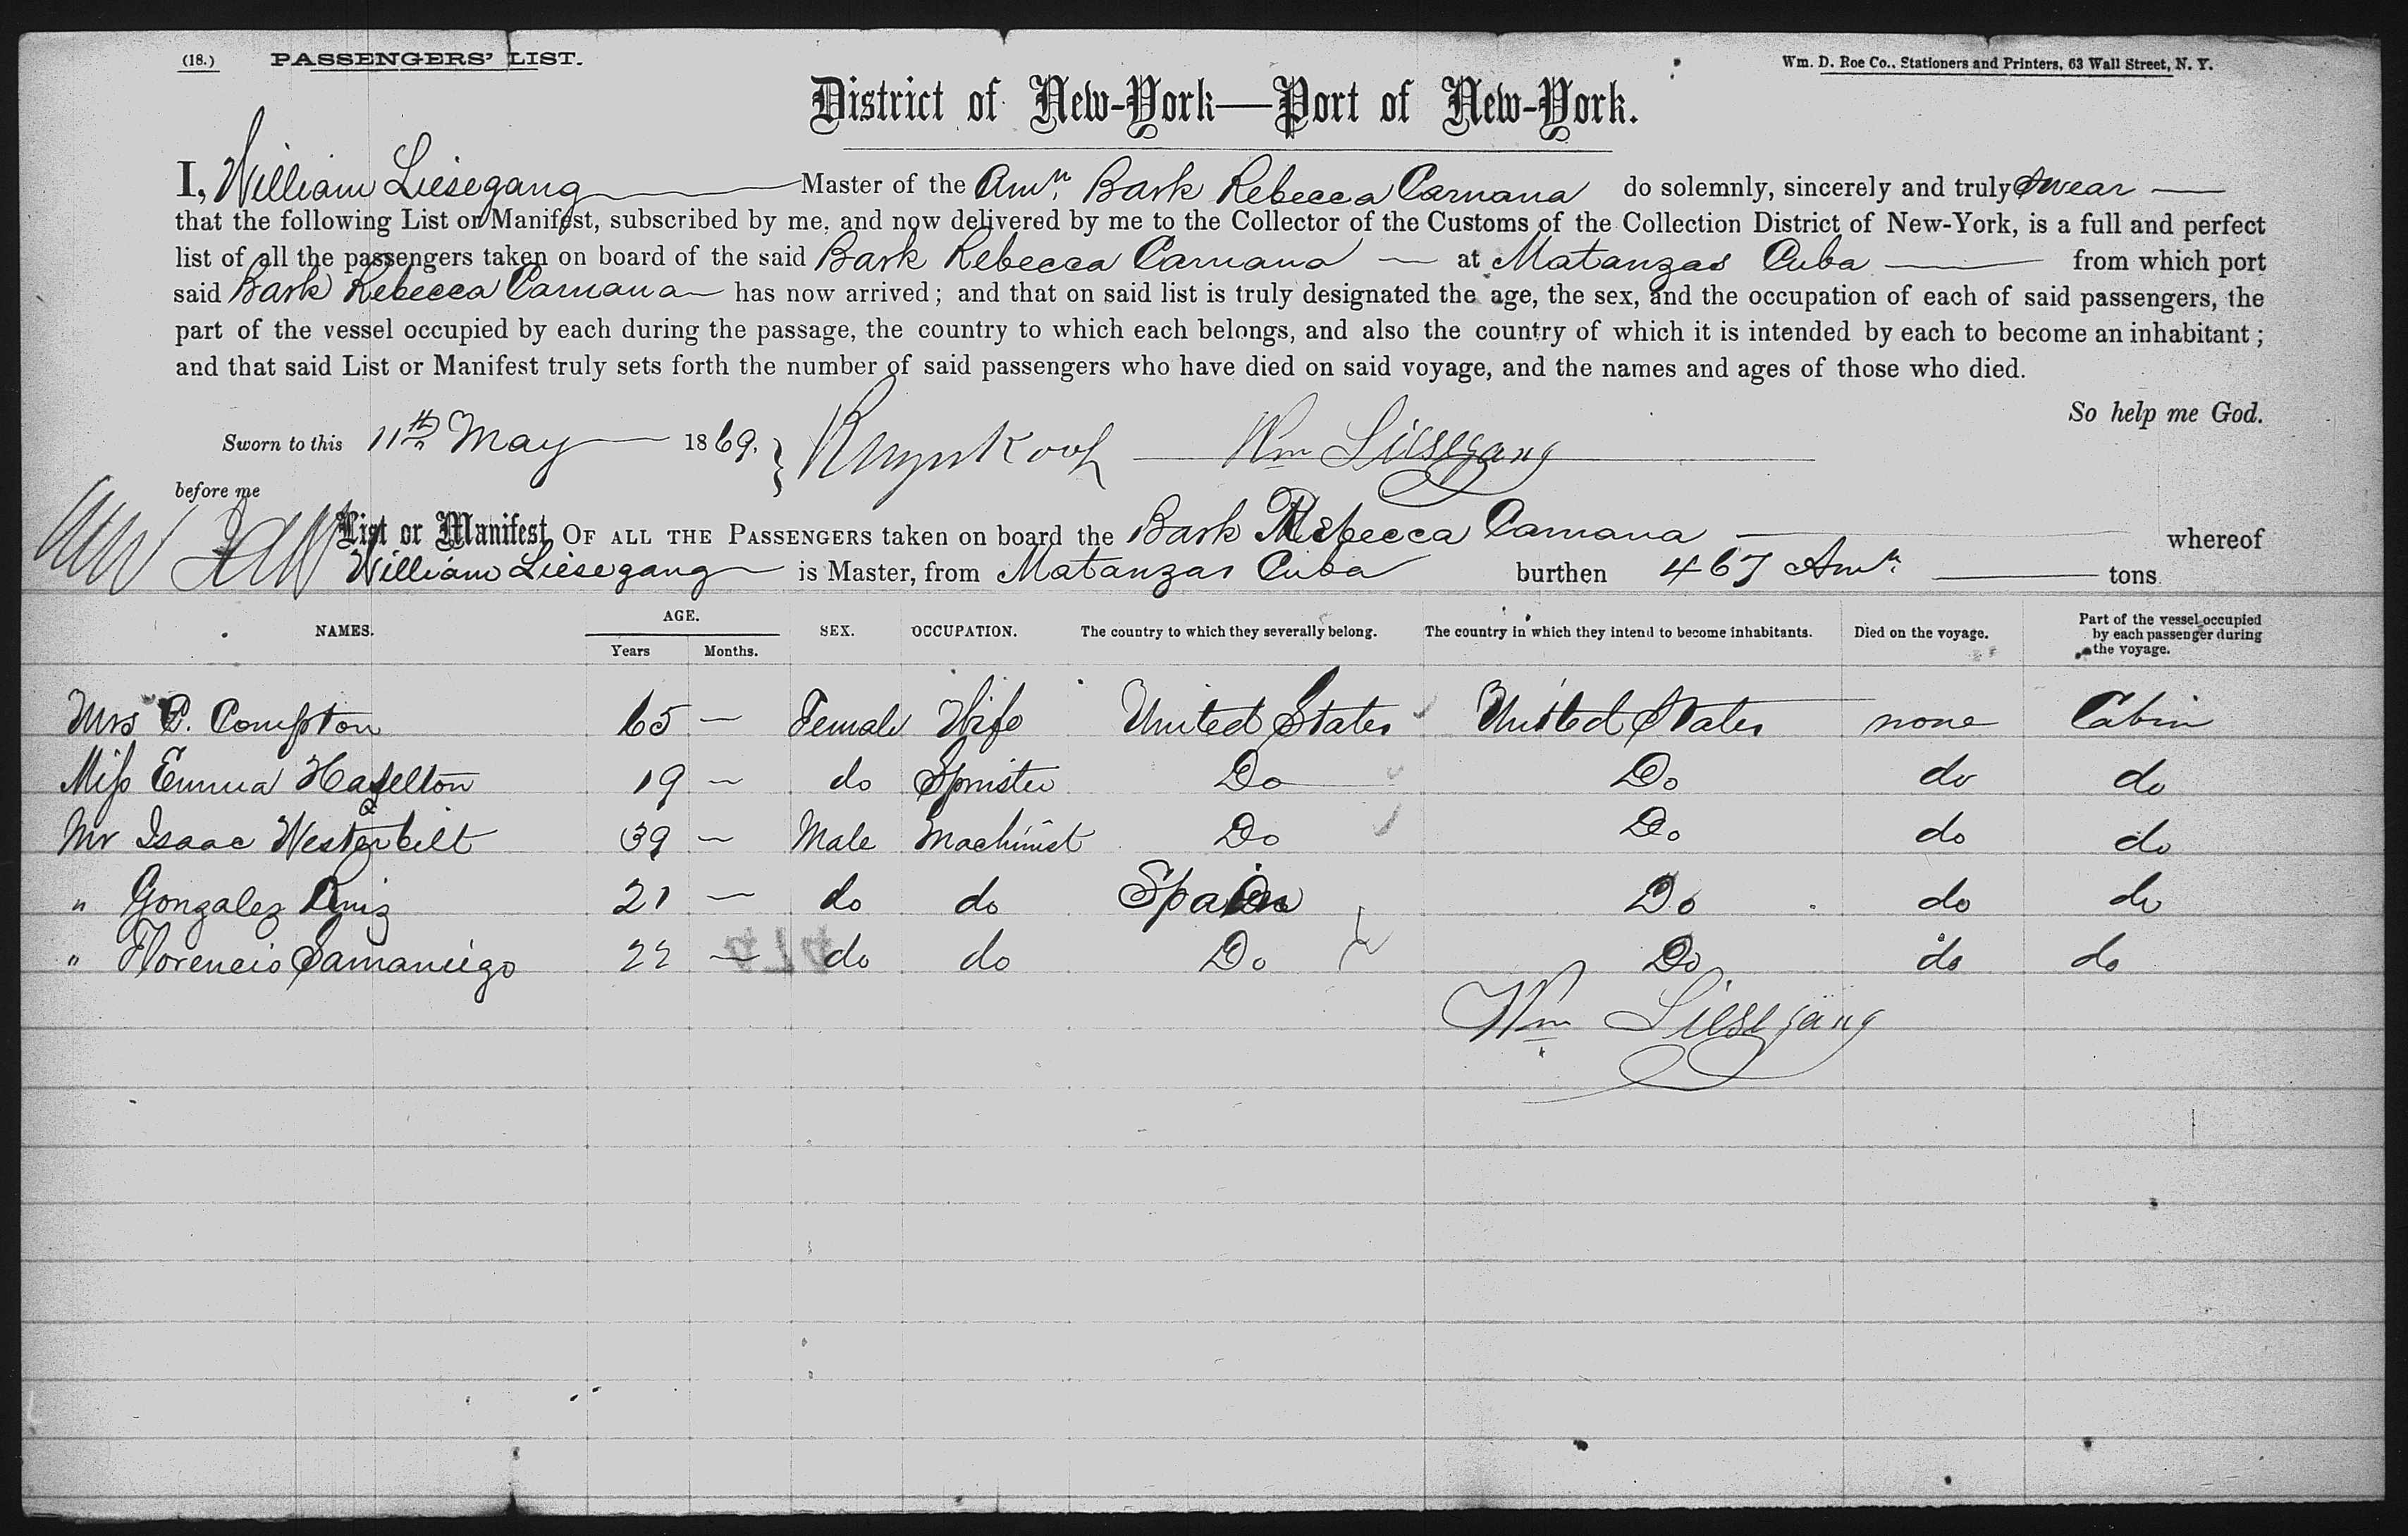 (18.) PASSENGERS' LIST. Wm. D. Roe Co., Stationers and Printers, 63 Wall Street, N. Y.
District of New-York—Port of New-York.
I, William Liesegang Master of the Amn. Bark Rebecca Carnana do solemnly, sincerely and truly swear
that the following List or Manifest, subscribed by me, and now delivered by me to the Collector of the Customs of the Collection District of New-York, is a full and perfect
list of all the passengers taken on board of the said Bark Rebecca Carnana — at Matanzas Cuba from which port
said Bark Rebecca Carnana has now arrived; and that on said list is truly designated the age, the sex, and the occupation of each of said passengers, the
part of the vessel occupied by each during the passage, the country to which each belongs, and also the country of which it is intended by each to become an inhabitant;
and that said List or Manifest truly sets forth the number of said passengers who have died on said voyage, and the names and ages of those who died.
So help me God.
Sworn to this 11th May 1869. } Wm Liesegang
before me
List or Manifest OF ALL THE PASSENGERS taken on board the Bark Rebecca Carnana whereof
William Liesegang is Master, from Matanzas Cuba burthen 467 Amn. tons
NAMES. AGE. Years Months. SEX. OCCUPATION. The country to which they severally belong. The country in which they intend to become inhabitants. Died on the voyage. Part of the vessel occupied by each passenger during the voyage.
Mrs C. Compton 65 — Female Wife United States United States none Cabin
Miss Emma Haselton 19 — do Spinster Do Do do do
Mr Isaac Westerbilt 39 — Male Machinist Do Do do do
" Gonzalez Ruiz 21 — do do Spain Do do do
" Florencio Samaniego 22 — do do Do Do do do
Wm Liesegang